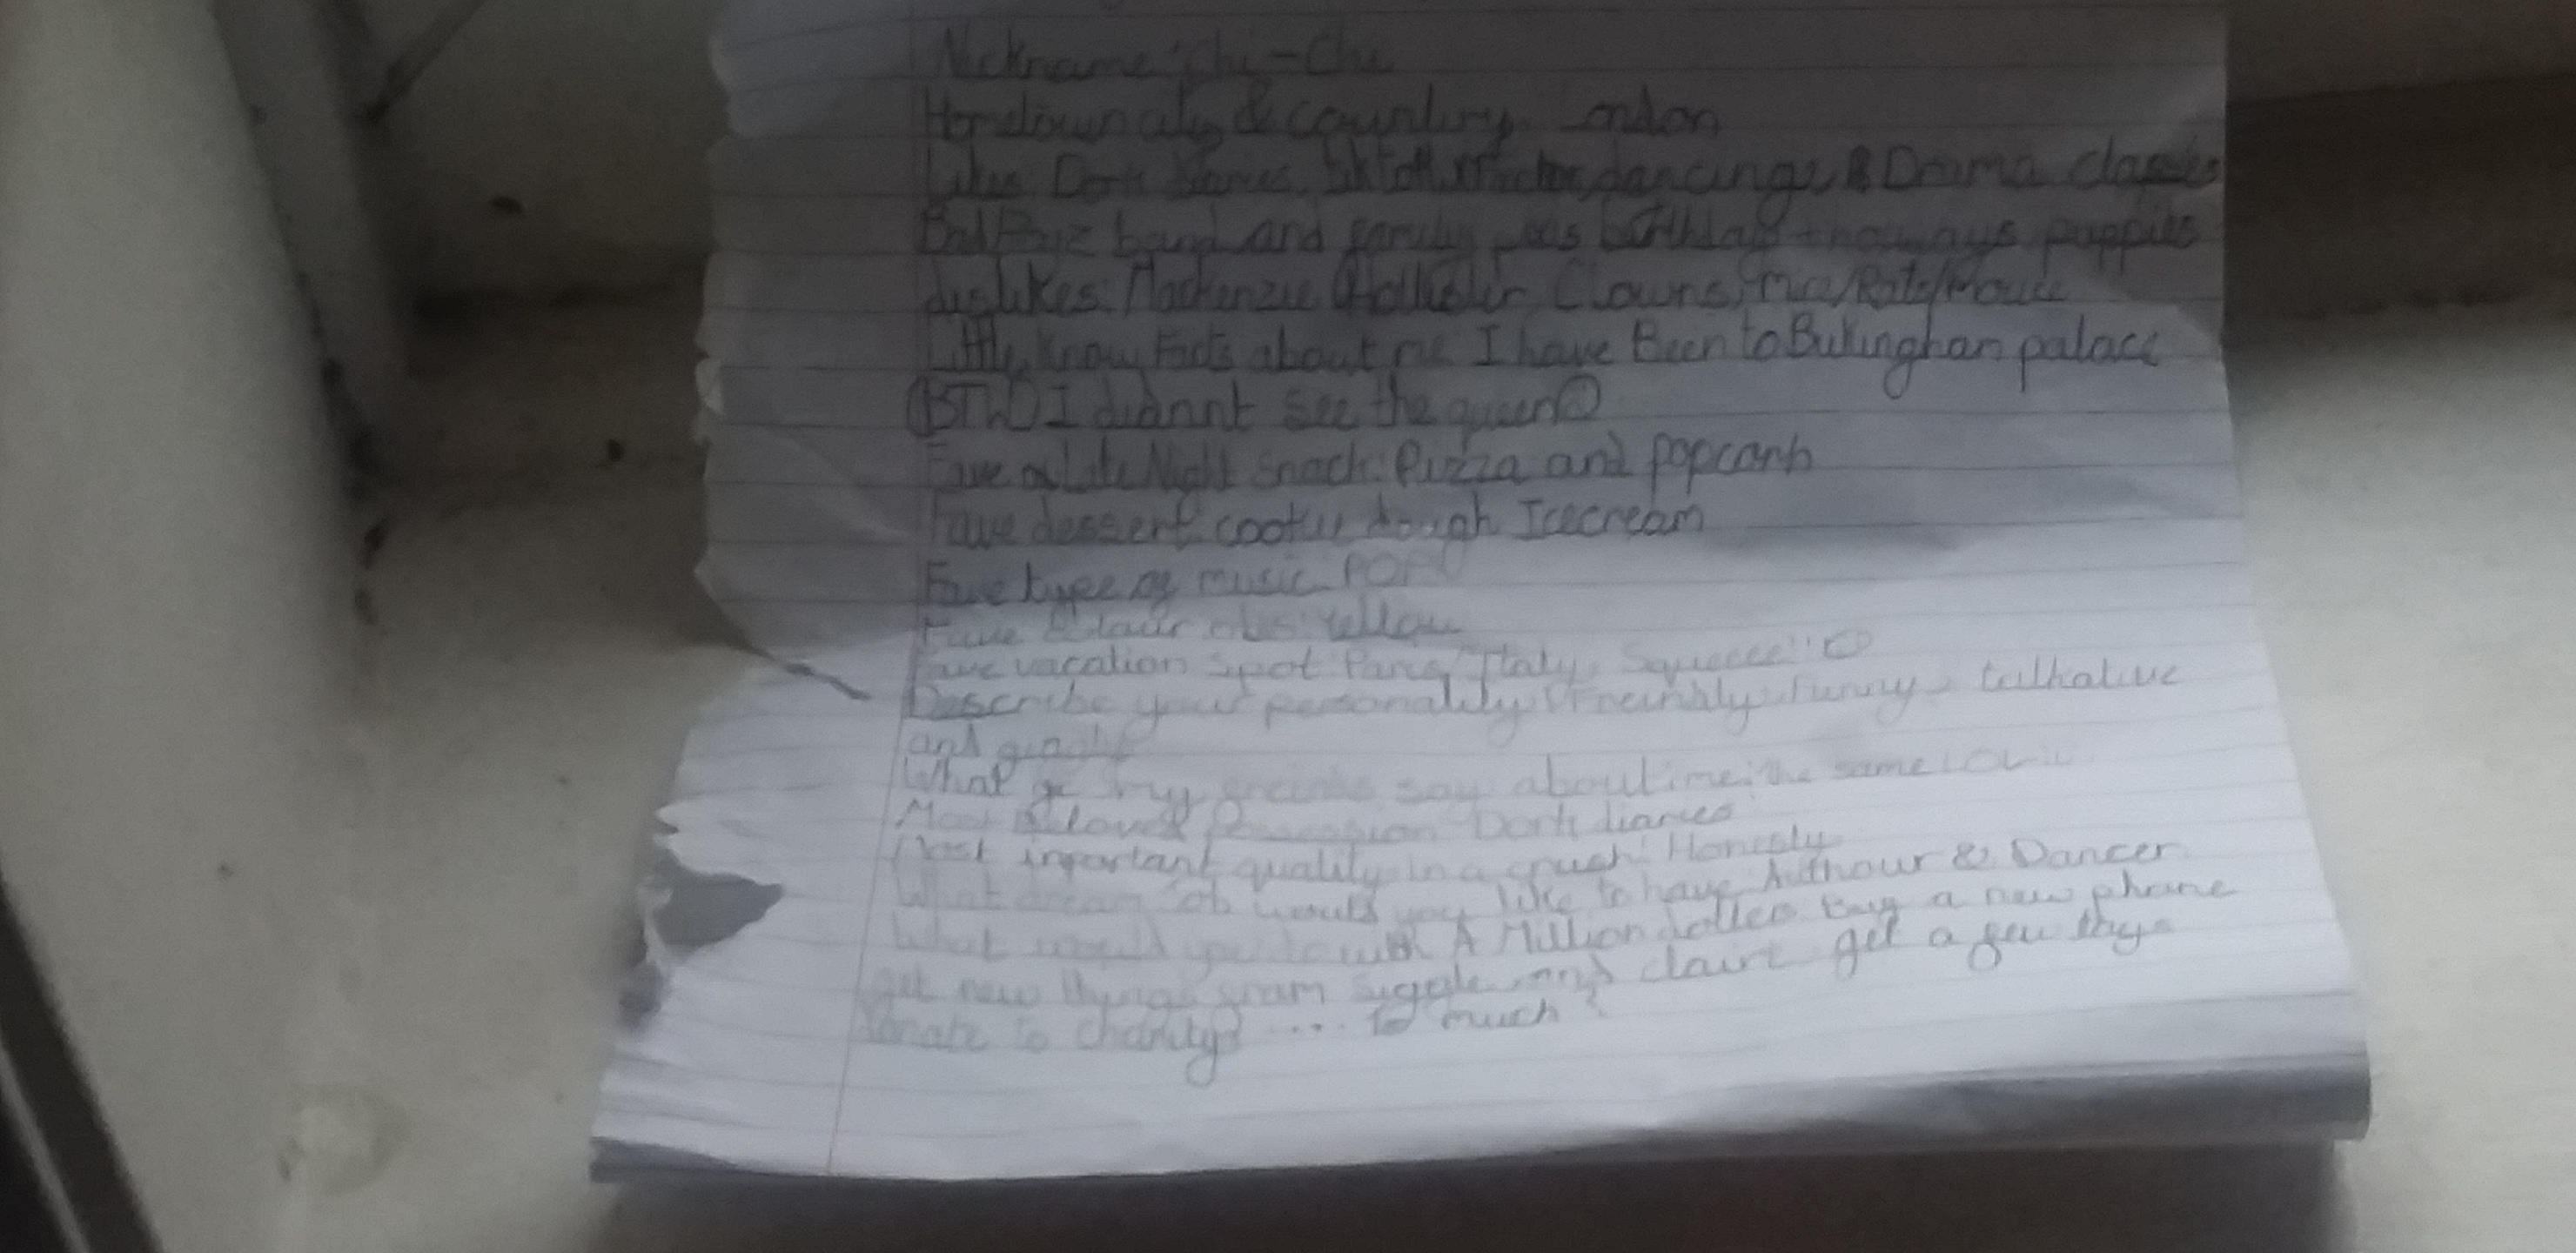 Nickname: Chi-Chi
Hometown city & country London
Likes Dork Diaries, tiktok, xfactor, dancing, & Drama classes
Bad Boyz band and family birthdays puppies
dislikes: Mackenzie Hollister, Clowns, Mice/Rats/Mouse
Little Know Facts about me I have Been to Bukinghan palace
(BTW) I didannt see the queen
Fave Late Night snack: Pizza and popcorn
Fave dessert: cookie dough Icecream
Fave type of music POP
Fave yellow
Fave vacation spot Paris/Italy,
Describe your personality: funny, talkative
and
What my say about me: the same
Most loved Possession Dork Diaries
Most important quality in a crush: Honesty
What dream job would you like to have, Authour & Dancer
What would you do with A Million dollers Buy a new phone
get new things and claire get a few
donate to charity? .... to much?